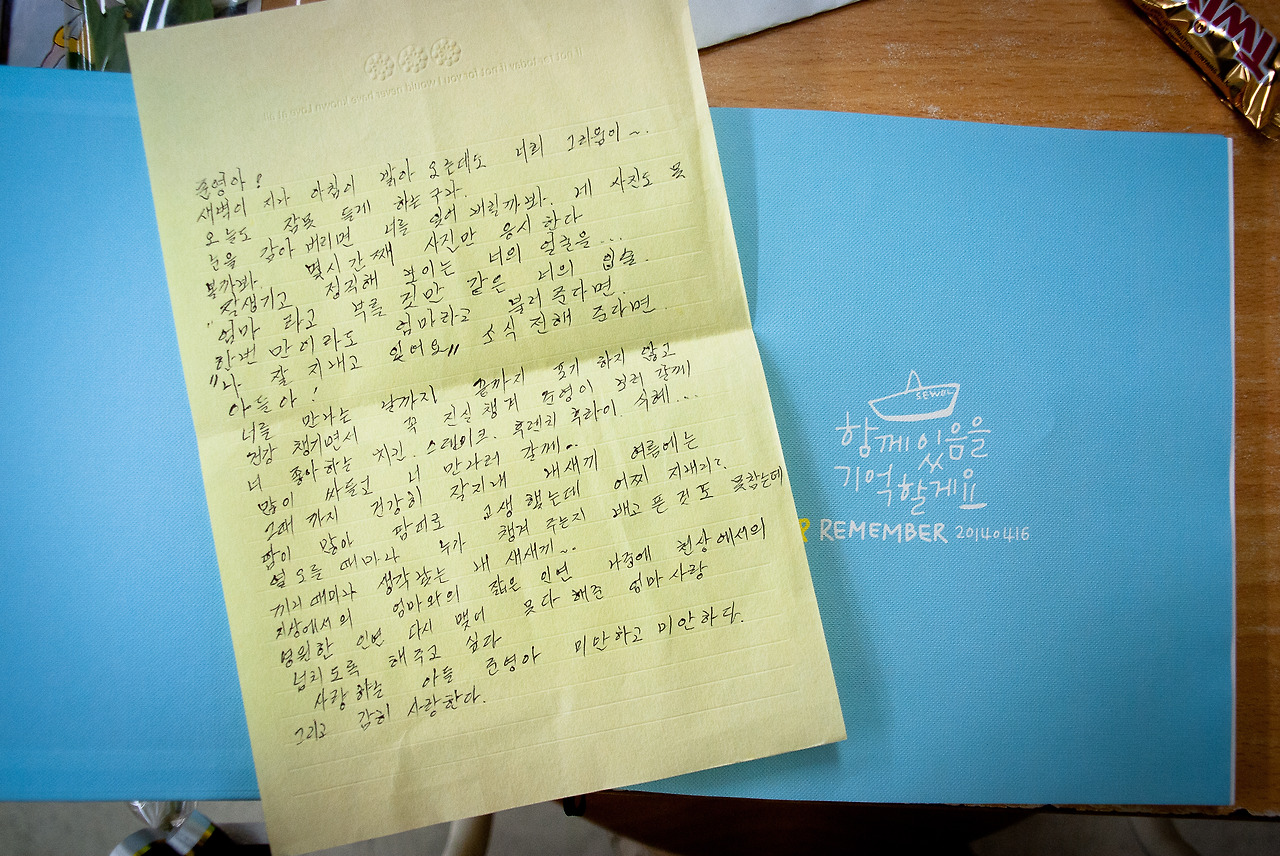 if not for today if not for you I would never have known Love at all
TWIX
준영아!
새벽이 지나 아침이 밝아 오는데도 너희 그리움이~.
오늘도 잠못 들게 하는구나.
눈을 감아 버리면 너를 잊어 버릴까봐. 네 사진도 못
볼까봐. 몇시간째 사진만 응시 한다
잘생기고 정직해 보이는 너의 얼굴을...
"엄마 라고 부를 것만 같은 너의 입술.
한번 만이라도 엄마라고 불러 준다면.
"나 잘 지내고 있어요" 소식 전해 준다면.
아들아!
너를 만나는 날까지 끝까지 포기 하지 않고
건강 챙기면서 꼭 진실 챙겨 준영이 보러 갈께
너 좋아하는 치킨. 스테이크. 후렌치 후라이 식혜...
많이 싸들고 너 만나러 갈께..
그때 까지 건강히 잘지내 내새끼 여름에는
땀이 많아 땀띠로 고생 했는데 어찌 지내니?.
열 오를 때마다 누가 챙겨 주는지 배고픈 것도 못참는데
끼니 때마다 생각나는 내 새새끼~.
지상에서의 엄마와의 짧은 인연 나중에 천상에서의
영원한 인연 다시 맺어 못다 해준 엄마사랑
넘치도록 해주고 싶다
사랑하는 아들 준영아 미안하고 미안하다.
그리고 감히 사랑한다.
SEWOL
함께 있음을
기억할게요
REMEMBER 20140416